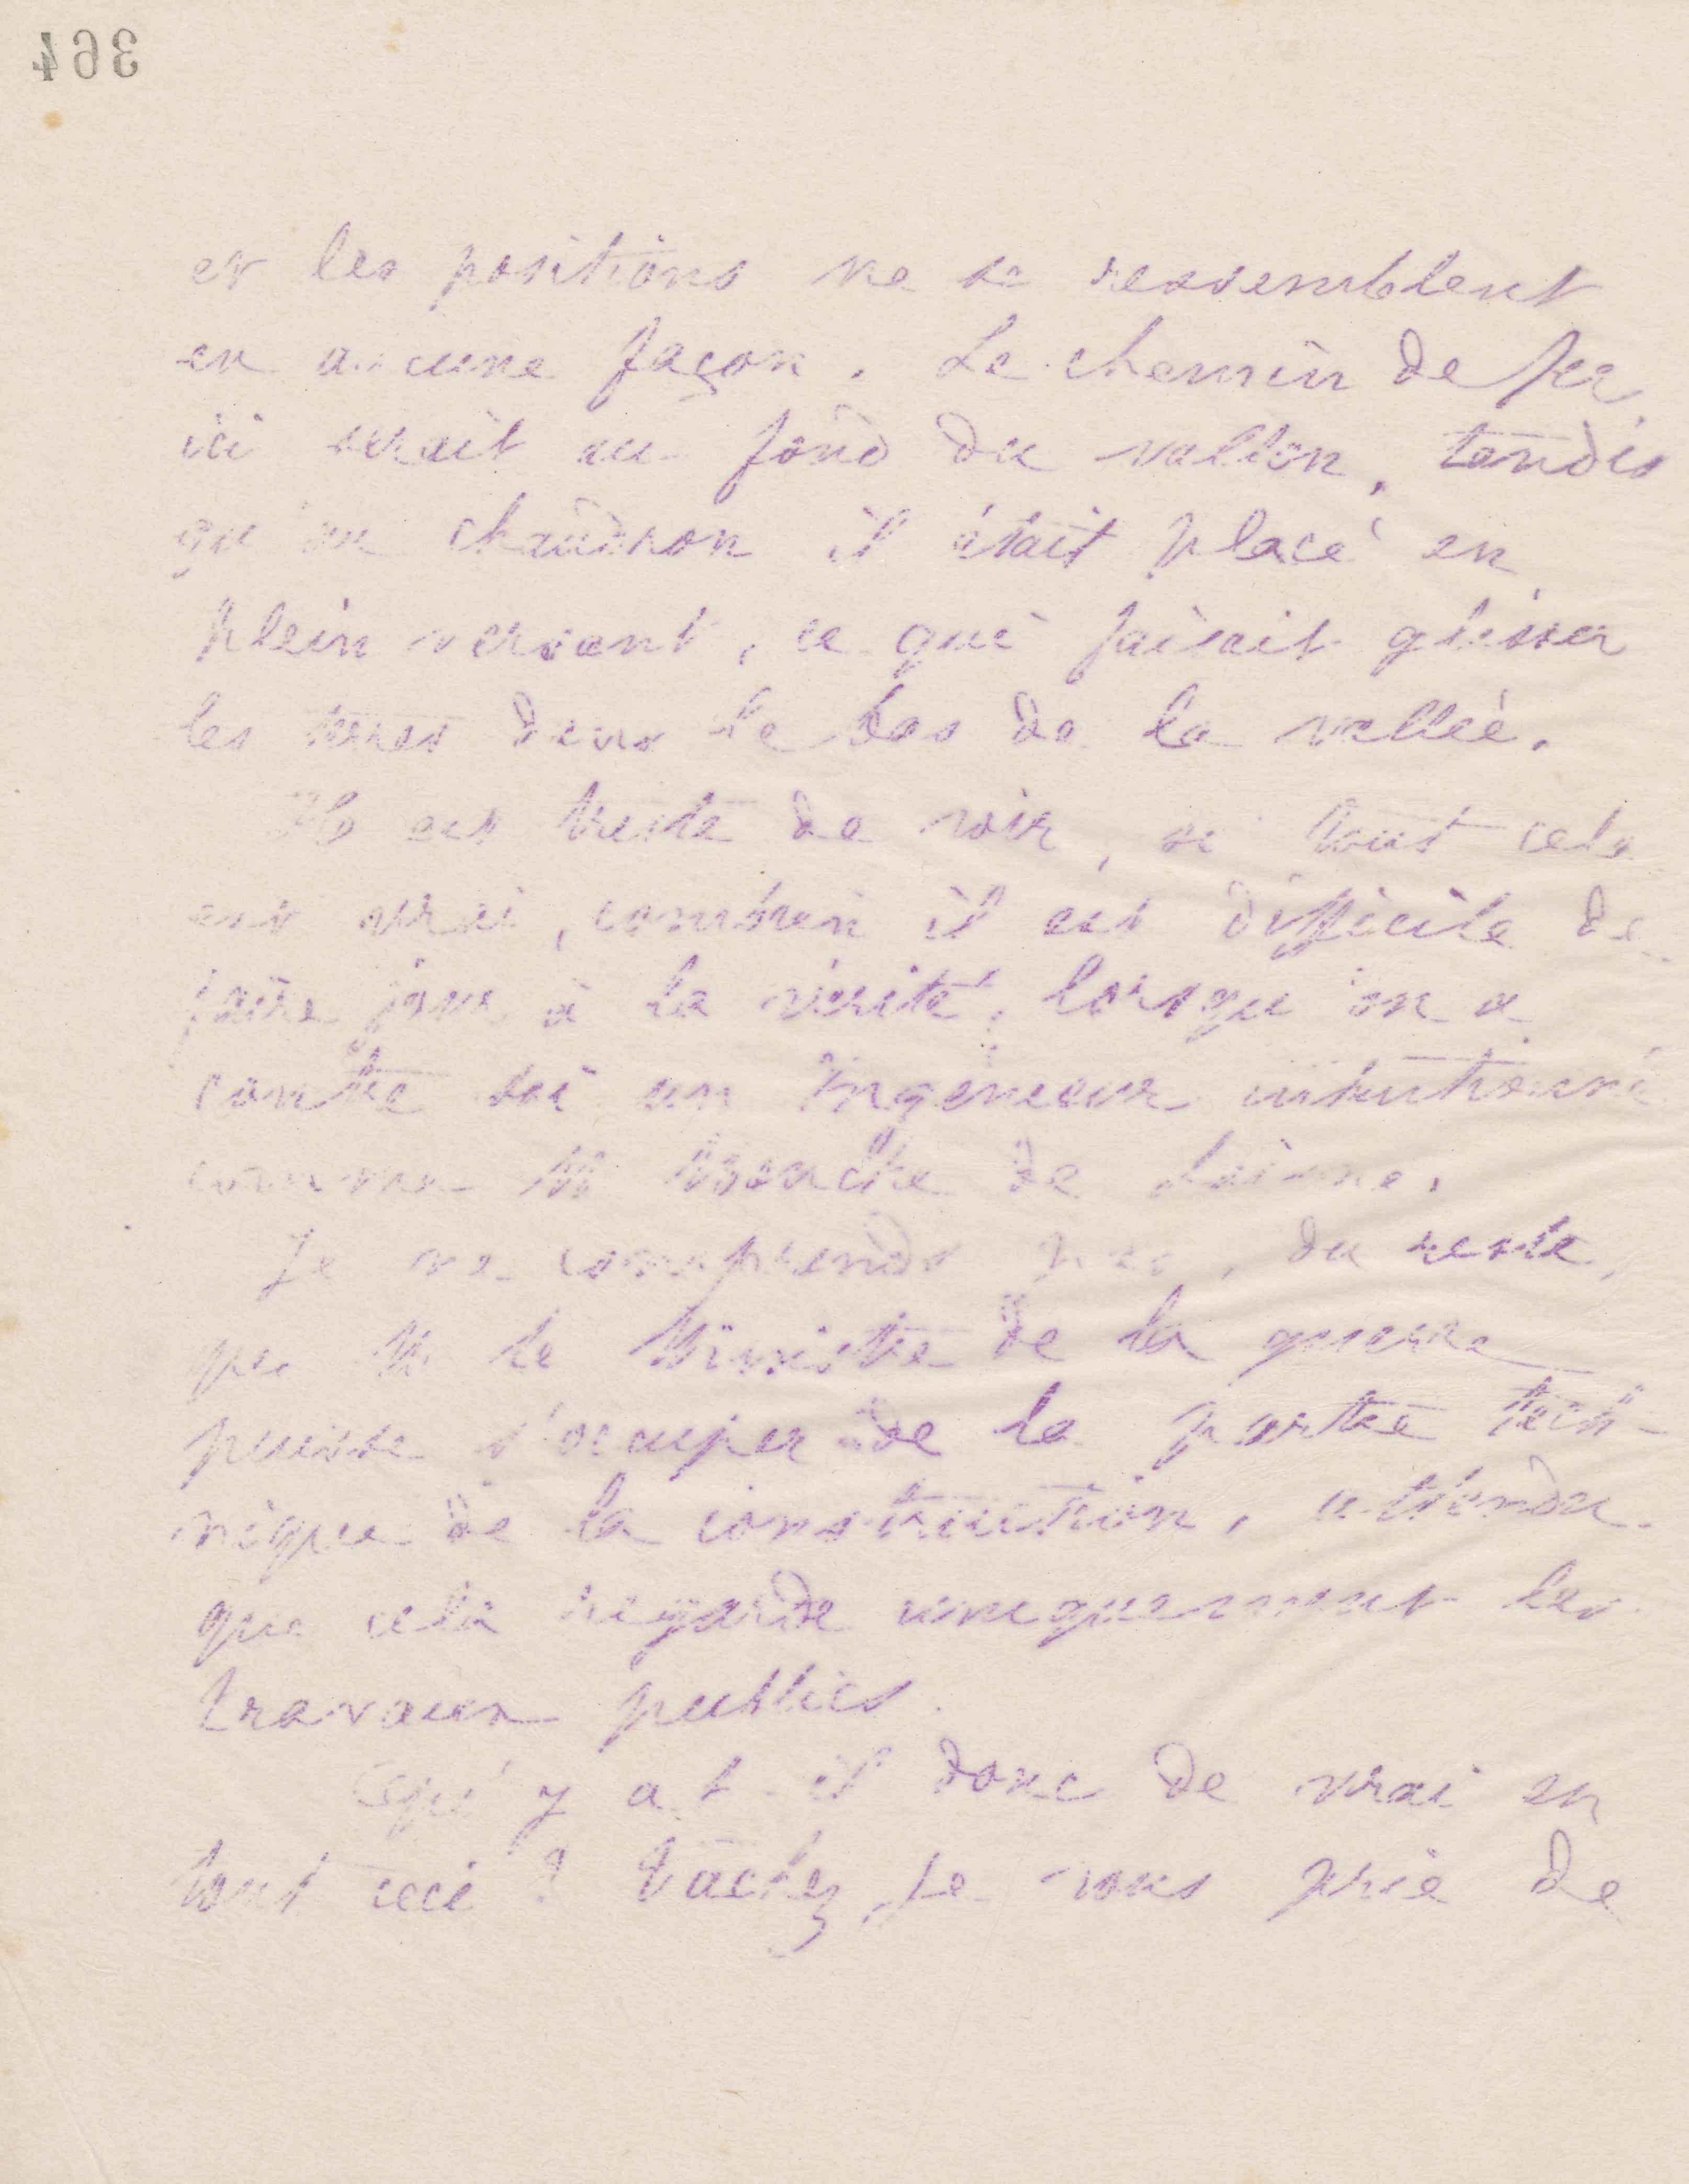 364
et les positions ne se ressemblent
en aucune façon. Le chemin de fer
ici serait au fond du vallon, tandis
qu'au chaudron il était placé en
plein versant, ce qui faisait glisser
les terres dans le bas de la vallée.
Il est triste de voir, si tout cela
est vrai, combien il est difficile de
faire jour à la vérité, lorsqu'on a
contre soi un Ingénieur intentionné
comme M de
Je ne comprends pas, du reste,
que M. le Ministre de la guerre
puisse s'occuper de la partie tech-
nique de la construction, attendu
que cela regarde uniquement les
travaux publics.
Qu'y a t-il donc de vrai en
tout ceci ? tâchez, je vous prie de